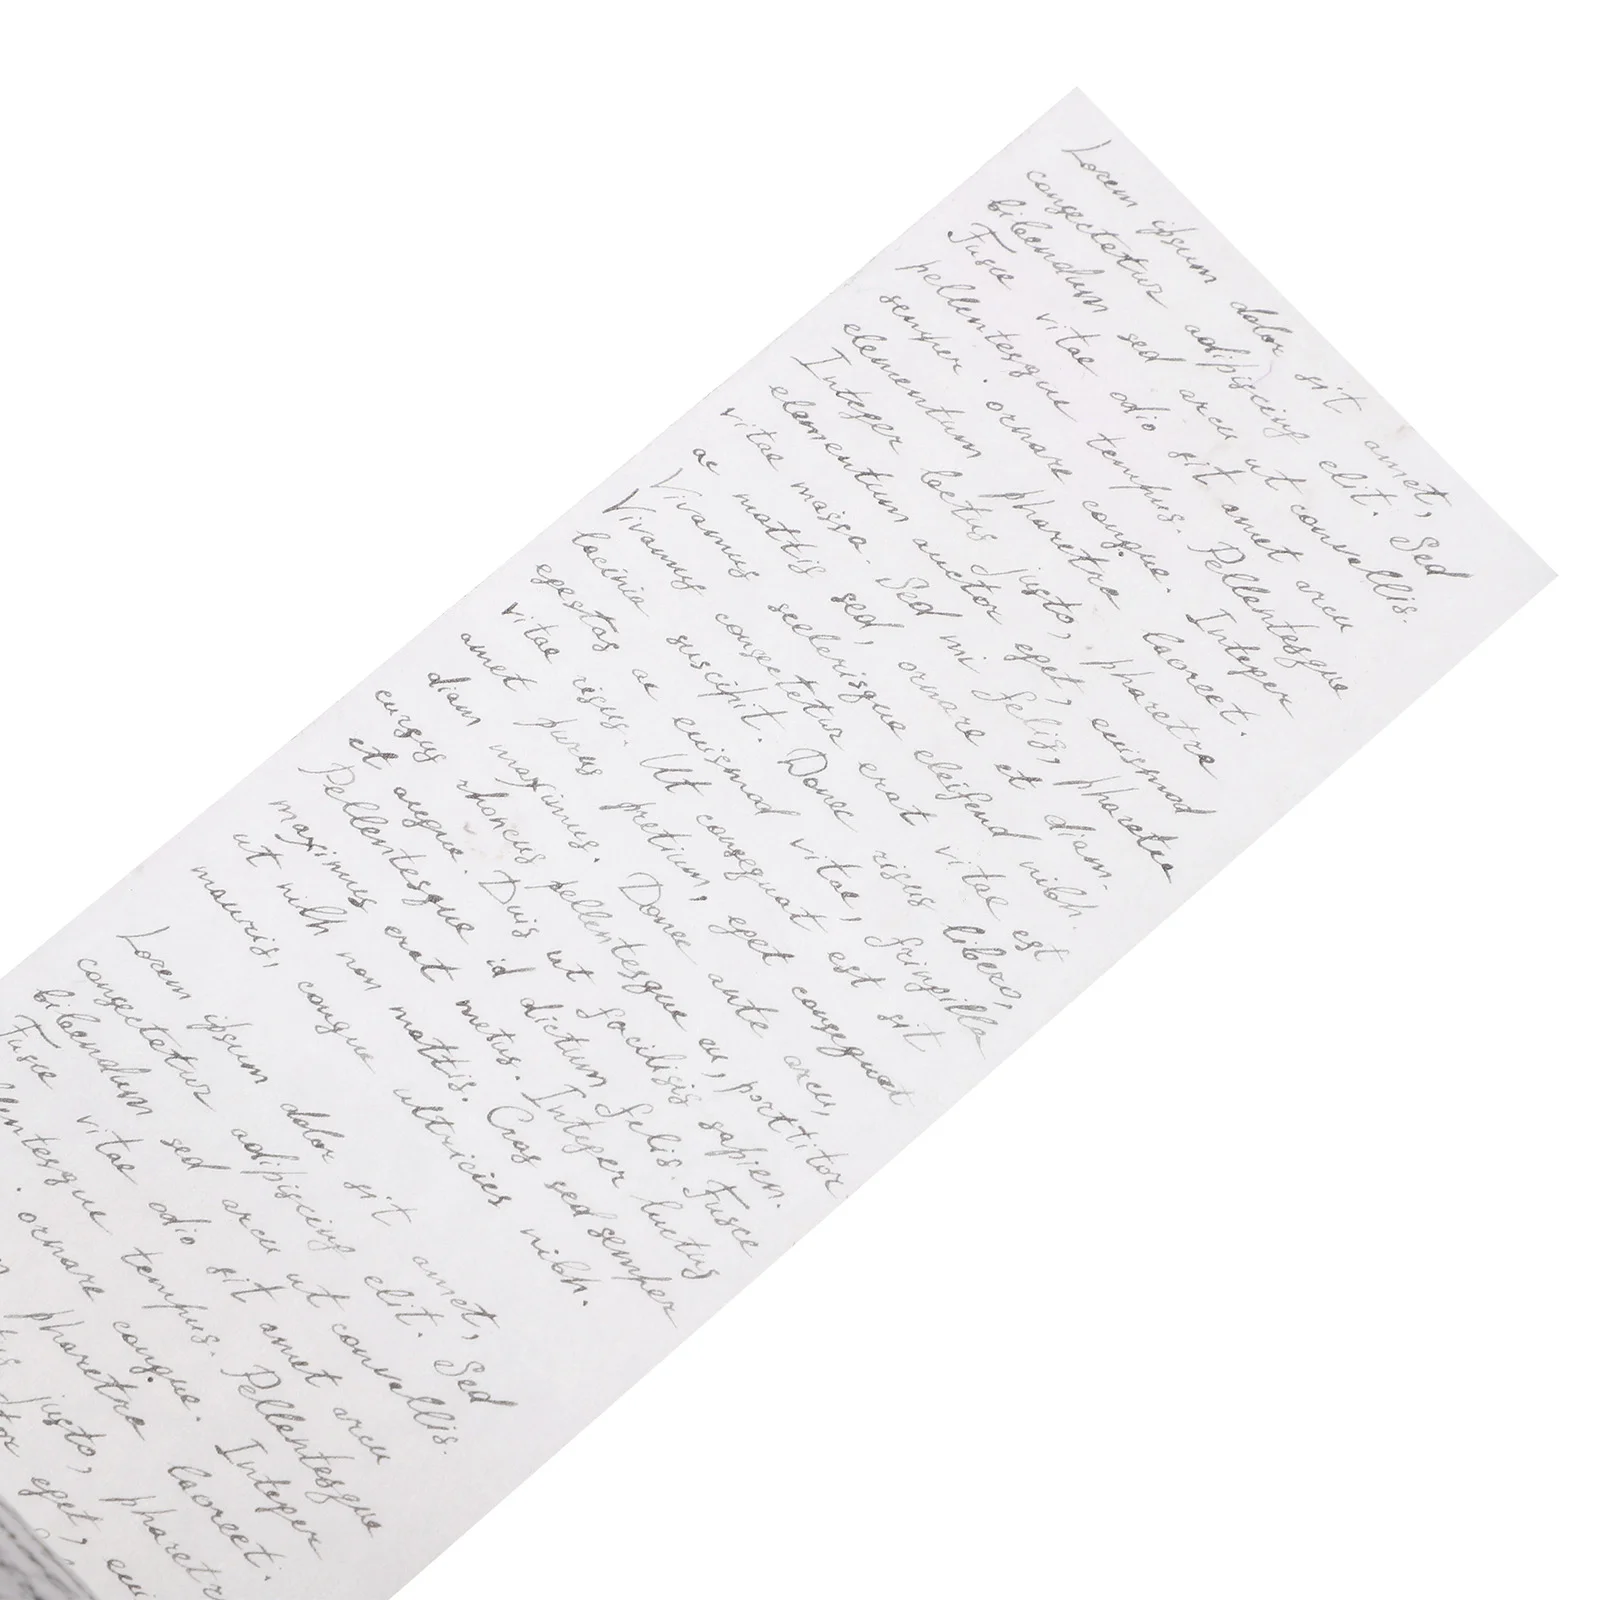 Lorem ipsum dolor sit amet,
consectetur adipiscing elit. Sed
bibendum sed arcu ut convallis.
Fusce vitae odio sit amet arcu
pellentesque tempus. Pellentesque
semper. ornare congue. Integer
elementum pharetra laoreet.
Integer lectus justo, pharetra
elementum auctor eget, euismod
vitae massa. Sed mi felis, pharetra
ac mattis sed, ornare et diam.
Vivamus scelerisque eleifend nibh
Vivamus consectetur erat vitae est
lacinia suscipit. Donec risus libero,
egestas ac euismod vitae, fringilla
vitae risus. Ut consequat est sit
amet purus pretium, eget consequat
diam maximus. Donec ante arcu,
cursus rhoncus pellentesque eu, porttitor
et augue. Duis ut facilisis sapien.
Pellentesque id dictum felis. Fusce
maximus erat metus. Integer luctus
ut nibh non mattis. Cras sed semper
mauris, congue ultricies nibh.
Lorem ipsum dolor sit amet,
consectetur adipiscing elit. Sed
bibendum sed arcu ut convallis.
Fusce vitae odio sit amet arcu
tempus. Pellentesque
. ornare congue. Integer
pharetra laoreet.
justo, pharetra
eget,